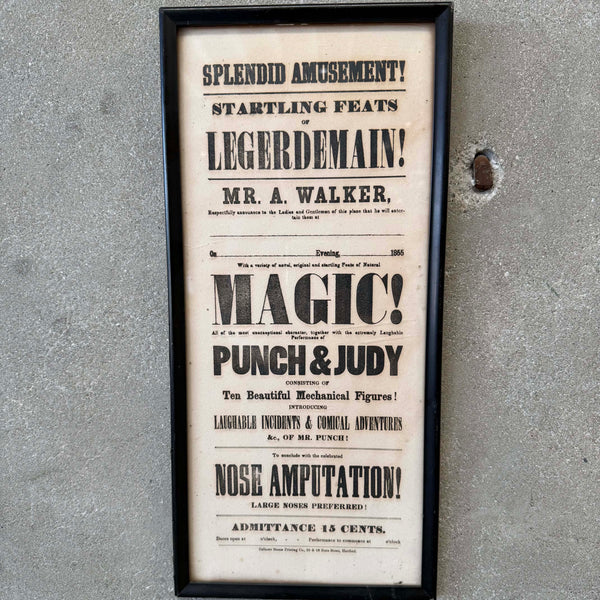 SPLENDID AMUSEMENT!
STARTLING FEATS
OF
LEGERDEMAIN!
MR. A. WALKER,
Respectfully announces to the Ladies and Gentlemen of this place that he will enter-
tain them at
On Evening, 1855
With a variety of novel, original and startling Feats of Natural
MAGIC!
All of the most unexceptional character, together with the extremely Laughable
Performance of
PUNCH & JUDY
CONSISTING OF
Ten Beautiful Mechanical Figures!
INTRODUCING
LAUGHABLE INCIDENTS & COMICAL ADVENTURES
&c., OF MR. PUNCH!
To conclude with the celebrated
NOSE AMPUTATION!
LARGE NOSES PREFERRED!
ADMITTANCE 15 CENTS.
Doors open at o'clock, - - Performance to commence at o'clock
Printing Co., State Street, Hartford.